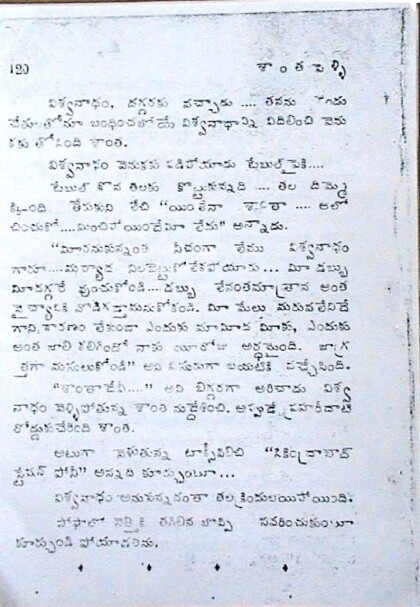 120 శాంత పెళ్ళి
విశ్వనాథం, దగ్గరకు వచ్చాడు .... తనను రెండు
చేతులతోనూ బంధించబోయే విశ్వనాథాన్ని విదిలించి వెను
కకు తోసింది శాంత.
విశ్వనాథం వెనుకకు పడిపోయాడు టేబుల్ పైకి....
టేబుల్ కొన తలకు కొట్టుకున్నది .... తల దిమ్మె
క్కింది తేరుకుని లేచి "యింతేనా శాంతా .... ఆలో
చించుకో....మించిపోయిందేమీ లేదు" అన్నాడు.
"మీరనుకున్నంత నీచంగా లేము విశ్వనాథం
గారూ....మర్యాద నిలబెట్టుకోలేకపోయారు... మీ డబ్బు
మీదగ్గరే వుంచుకోండి....డబ్బు లేనంతమాత్రాన అంత
నైచ్యానికి వొడిగట్టామనుకోకండి. మీ మేలు మరువలేనిదే
గాని, కారణం లేకుండా ఎందుకు మామీద మీకు, ఎందుకు
అంత జాలి కలిగిందో నాకు యీరోజు అర్థమైంది. జాగ్ర
త్తగా మసులుకోండి" అని విసురుగా బయటికి వచ్చేసింది.
"శాంతాదేవీ...." అని బిగ్గరగా అరిచాడు విశ్వ
నాథం వెళ్ళిపోతున్న శాంత నుద్దేశించి. అప్పుడే ప్రహరీదాటి
రోడ్డుకుచేరింది శాంత.
అటుగా వెళుతున్న టాక్సీపిలిచి "సికింద్రాబాద్
స్టేషన్ పోనీ" అన్నది కూర్చుంటూ...
విశ్వనాథం అనుకున్నదంతా తల క్రిందులయిపోయింది.
సోఫాలో నెత్తికి తగిలిన బొప్పి సవరించుకుంటూ
కూర్చుండి పోయాడతను.